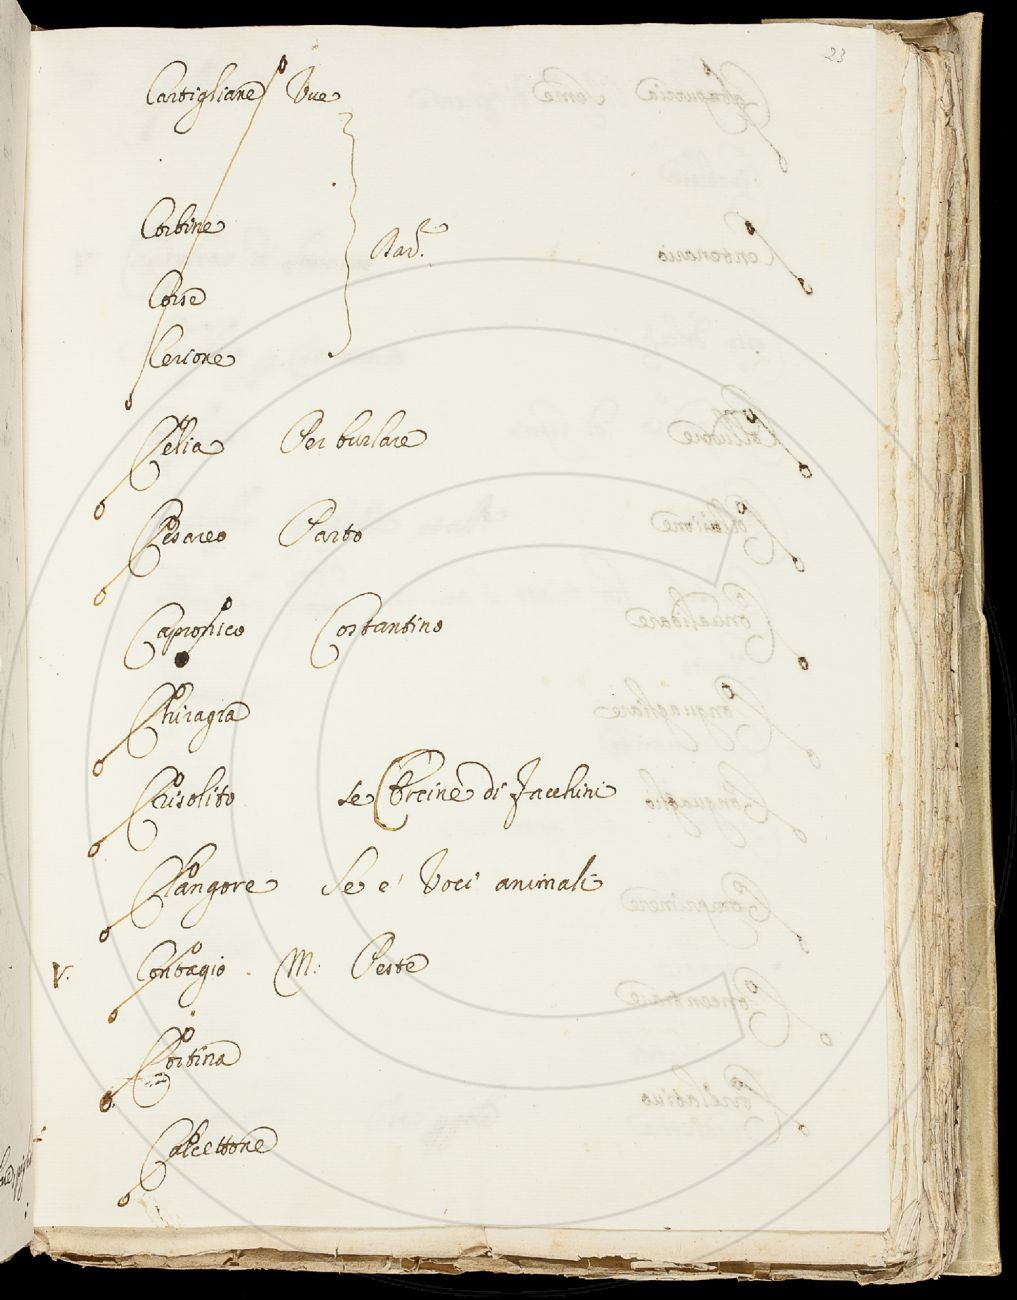 23
Cartigliane Vue
Corbine
Corse
Cerione
Celia Per burlare
Cesareo Parto
Costantino
Chiragra
Crisolito se Orcine di Jacchini
Clangore Se e' Voci animali
V. Contagio. M: Peste
Cortina
Calcettone